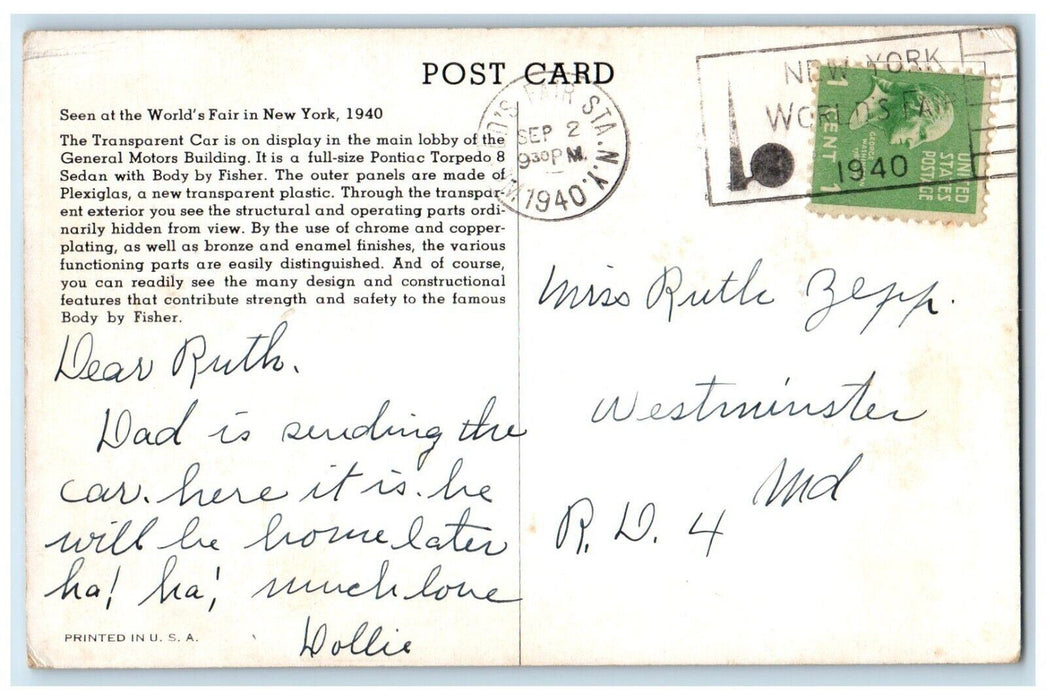 POST CARD
Seen at the World's Fair in New York, 1940
The Transparent Car is on display in the main lobby of the
General Motors Building. It is a full-size Pontiac Torpedo 8
Sedan with Body by Fisher. The outer panels are made of
Plexiglas, a new transparent plastic. Through the transpar-
ent exterior you see the structural and operating parts ordi-
narily hidden from view. By the use of chrome and copper-
plating, as well as bronze and enamel finishes, the various
functioning parts are easily distinguished. And of course,
you can readily see the many design and constructional
features that contribute strength and safety to the famous
Body by Fisher.
Dear Ruth.
Dad is sending the
car. here it is. he
will be home later
ha! ha! much love
Dollie
PRINTED IN U. S. A.
FAIR STA. N.Y.
SEP 2
9 30 PM
1940
NEW YORK
WORLD'S FAIR
1940
UNITED
STATES
POSTAGE
1 CENT 1
GEORGE WASHINGTON
Miss Ruth Zepp.
Westminster
Md
R. D. 4